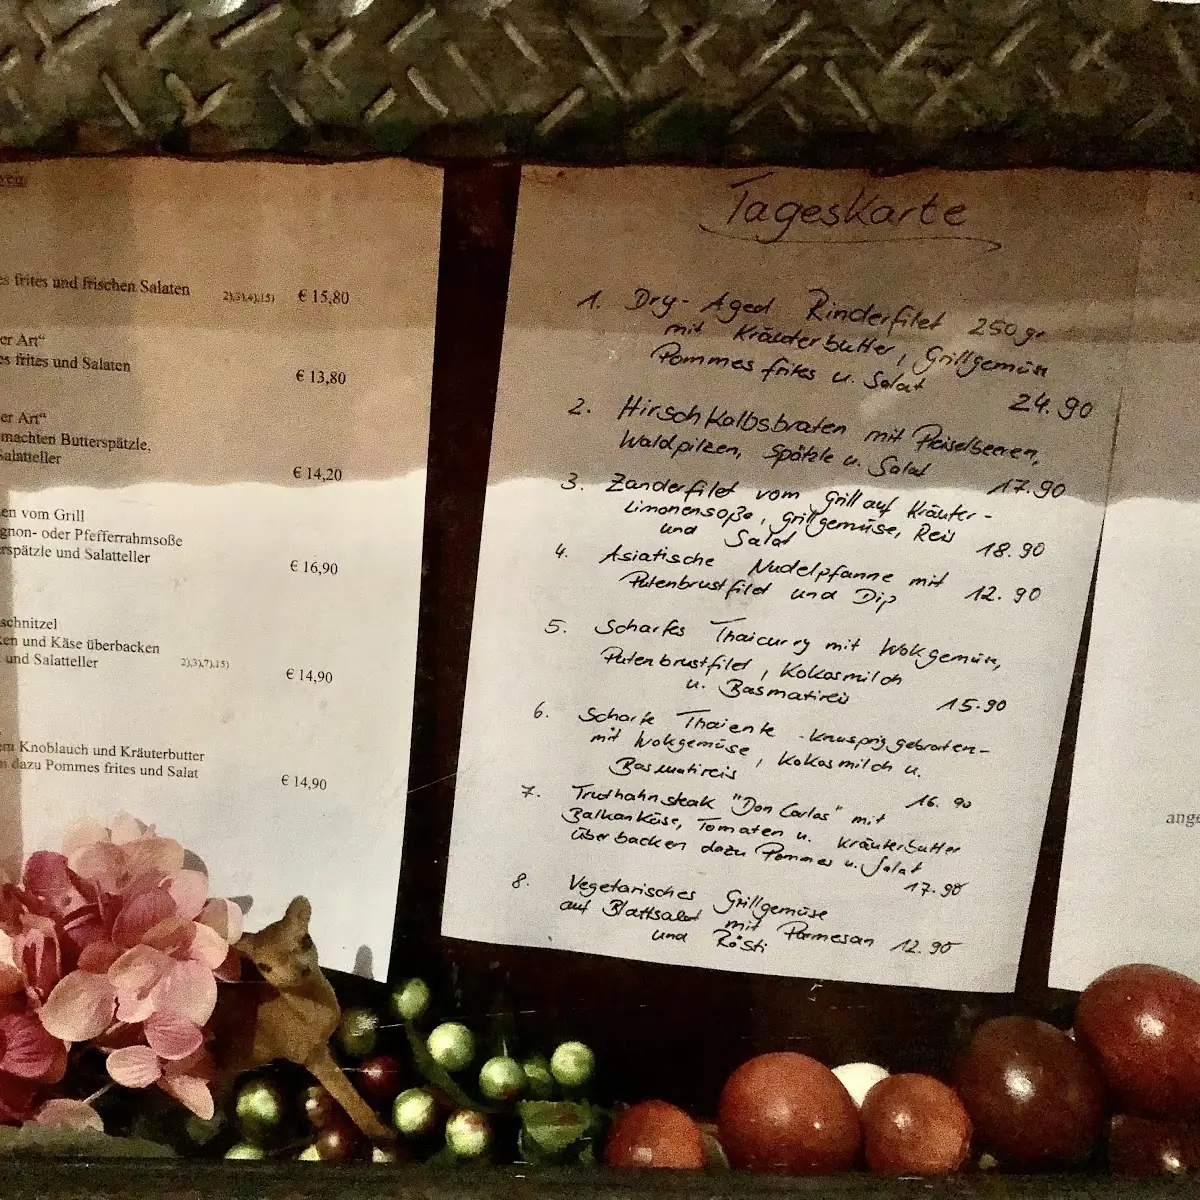 es frites und frischen Salaten 2),3),4),15) € 15,80
er Art“
es frites und Salaten
€ 13,80
er Art“
machten Butterspätzle,
Salatteller
€ 14,20
en vom Grill
gnon- oder Pfefferrahmsoße
rspätzle und Salatteller
€ 16,90
schnitzel
ken und Käse überbacken
und Salatteller 2),3),7),15)
€ 14,90
em Knoblauch und Kräuterbutter
n dazu Pommes frites und Salat
€ 14,90
Tageskarte
1. Dry-Aged Rinderfilet 250gr
mit Kräuterbutter, Grillgemüse
Pommes frites u. Salat
24.90
2. Hirschkalbsbraten mit Preiselbeeren,
Waldpilzen, Spätzle u. Salat
17.90
3. Zanderfilet vom Grill auf Kräuter-
Limonensoße, Grillgemüse, Reis
und Salat
18.90
4. Asiatische Nudelpfanne mit
Putenbrustfilet und Dip 12.90
5. Scharfes Thaicurry mit Wokgemüse,
Putenbrustfilet, Kokosmilch
u. Basmatireis
15.90
6. Scharfe Thaiente -knusprig gebraten-
mit Wokgemüse, Kokosmilch u.
Basmatireis
16.90
7. Truthahnsteak "Don Carlos" mit
Balkankäse, Tomaten u. Kräuterbutter
überbacken dazu Pommes u. Salat
17.90
8. Vegetarisches Grillgemüse
auf Blattsalat mit Parmesan
und Rösti 12.90
ange